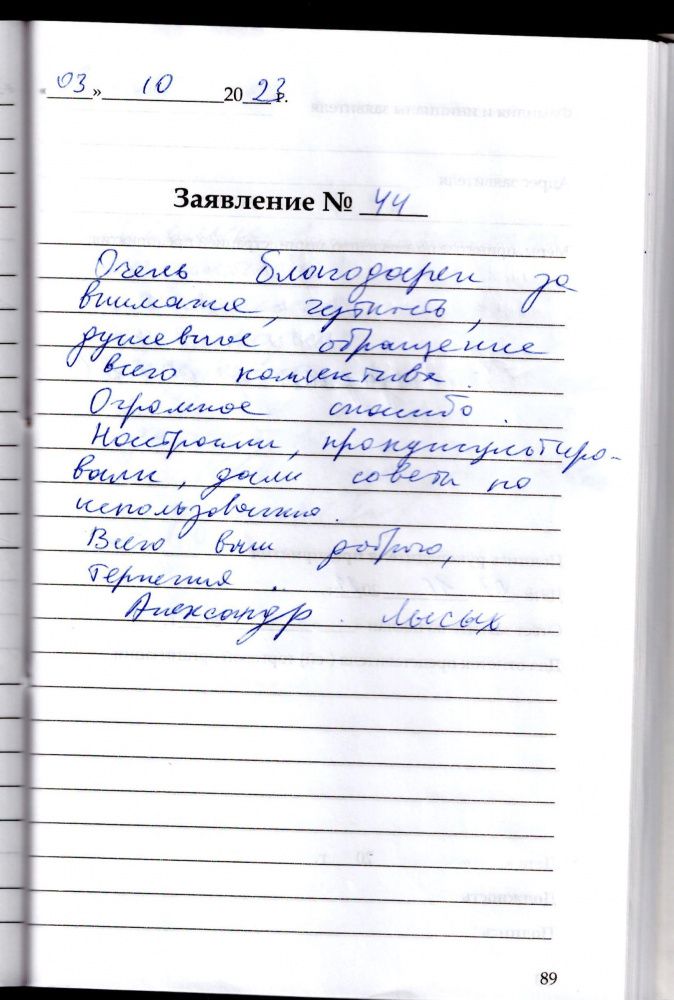 «03» 10 2023 г.
Заявление № 44
Очень благодарен за
внимание, чуткость,
душевное обращение
всего коллектива.
Огромное спасибо.
Настроили, проконсультиро-
вали, дали советы по
использованию.
Всего вам доброго,
терпения.
Александр. Лысых
89